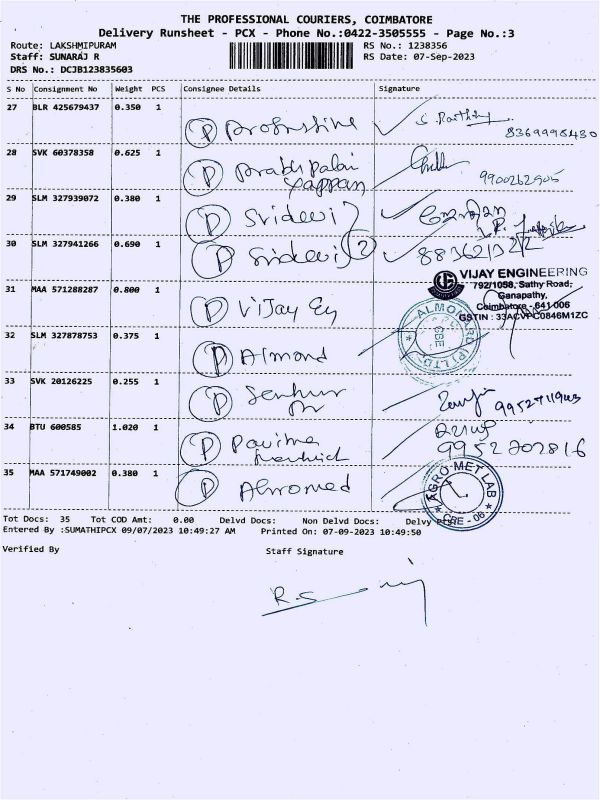 THE PROFESSIONAL COURIERS, COIMBATORE
Delivery Runsheet - PCX - Phone No.:0422-3505555 - Page No.:3
Route: LAKSHMIPURAM RS No.: 1238356
Staff: SUNARAJ R RS Date: 07-Sep-2023
DRS No.: DCJB123835603
S No Consignment No Weight PCS Consignee Details Signature
27 BLR 425679437 0.350 1
P
8369998430
28 SVK 60378358 0.625 1
P
9900262905
29 SLM 327939072 0.380 1
P Sridevi
30 SLM 327941266 0.690 1
P Sridevi 2
31 MAA 571288287 0.800 1
P Vijay
VIJAY ENGINEERING
792/1058, Sathy Road,
Ganapathy,
Coimbatore - 641 006
GSTIN : 33ACVPC0846M1ZC
32 SLM 327878753 0.375 1
P Almond
33 SVK 20126225 0.255 1
P
34 BTU 600585 1.020 1
P
9952202816
35 MAA 571749002 0.380 1
P
AGRO MET LAB
CBE - 06
Tot Docs: 35 Tot COD Amt: 0.00 Delvd Docs: Non Delvd Docs: Delvy
Entered By :SUMATHIPCX 09/07/2023 10:49:27 AM Printed On: 07-09-2023 10:49:50
Verified By Staff Signature
R.S